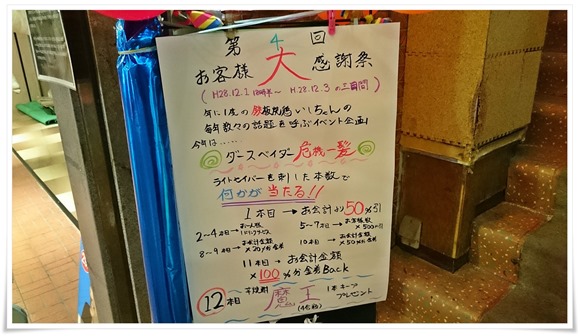 第4回
お客様 大 感謝祭
(H28.12.1 18時半〜 H28.12.3の三日間)
年に1度の鉄板焼鶏いしちゃんの
毎年数々の話題を呼ぶイベント企画!
今年は……
ダースベイダー危機一髪
ライトセイバーを刺した本数で
何かが当たる!!
1本目→お会計より50%引
2〜4本目→お一人様1ドリンクサービス
5〜7本目→お客様数×500円引
8〜9本目→お会計金額×20%お金券
10本目→お会計金額×50%お金券
11本目→お会計金額
×100%お金券Back
12本目 芋焼酎 魔王 (4合瓶) 1本キープ
プレゼント